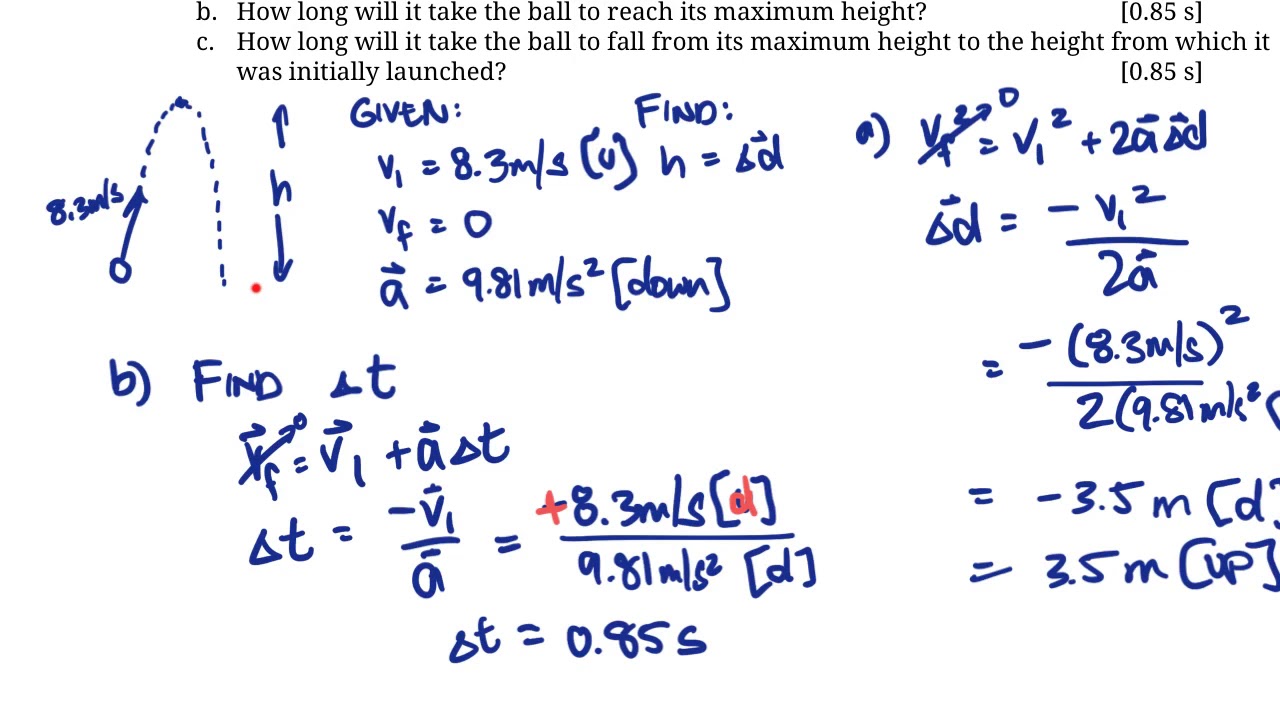 b. How long will it take the ball to reach its maximum height? [0.85 s]
c. How long will it take the ball to fall from its maximum height to the height from which it
was initially launched? [0.85 s]
8.3m/s
h
GIVEN:
v₁ = 8.3m/s [U]
v_f = 0
a⃗ = 9.81m/s² [down]
FIND:
h = Δd⃗
a) v_f² → 0 = v₁² + 2a⃗Δd⃗
Δd⃗ = -v₁² / 2a⃗
= -(8.3m/s)² / 2(9.81m/s² [
= -3.5m [d]
= 3.5m [UP]
b) FIND Δt
v⃗_f → 0 = v⃗₁ + a⃗Δt
Δt = -v⃗₁ / a⃗ = +8.3m/s [d] / 9.81m/s² [d]
Δt = 0.85s